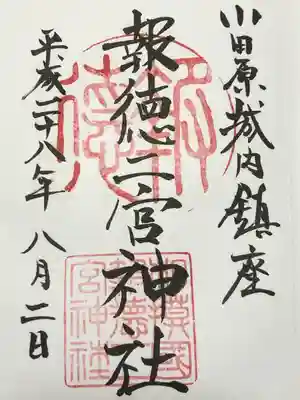 小田原城内鎮座
報徳二宮神社
平成二十八年八月二日
報徳
相模國
報徳二
宮神社